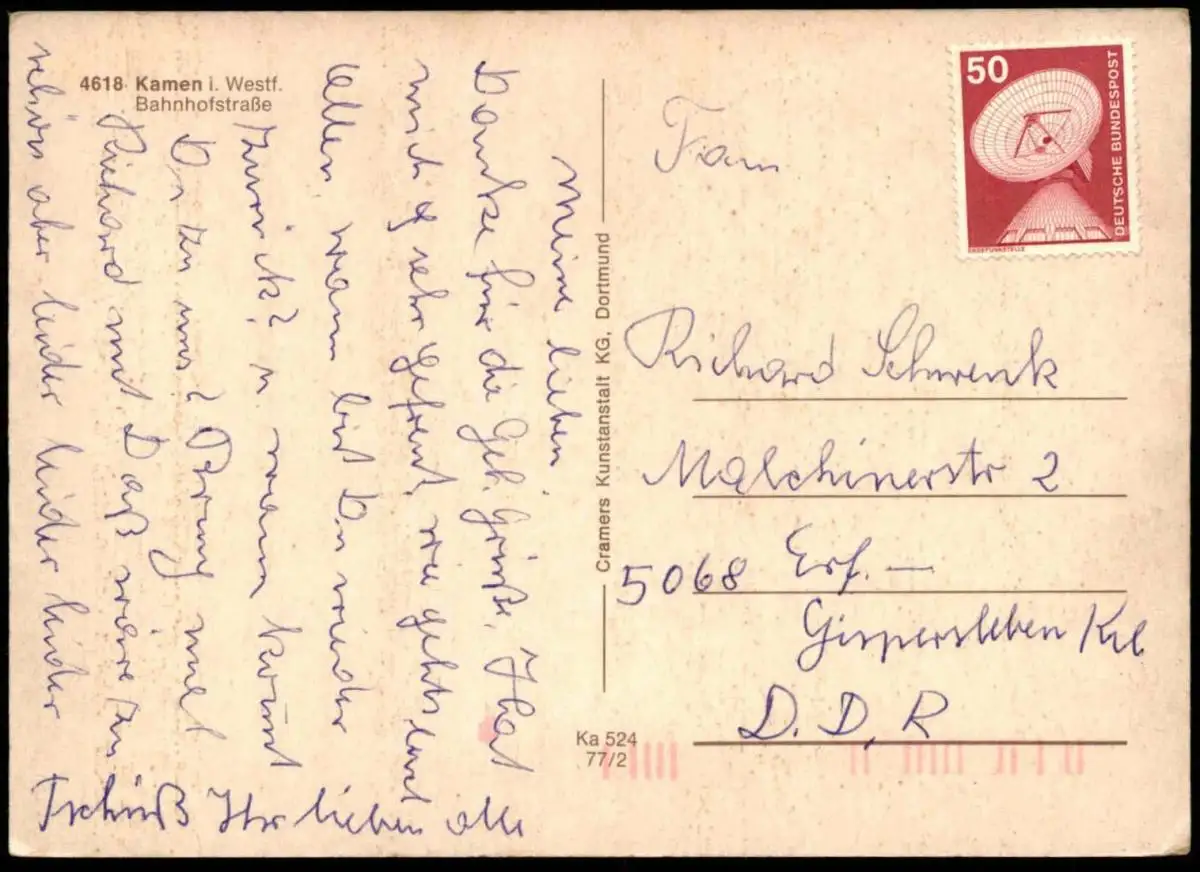 4618 Kamen i. Westf.
Bahnhofstraße
Meine lieben
Danke für die Gebl. Grüße, Ihat
mich sehr gefreut, wie gehts euch
Ellen, wann bist Du wieder
zurück? u. wann kommt
Du zu uns?
Richard mit. Daß wäre zu
schön aber leider leider leider
Tschüß Ihr lieben alle
Cramers Kunstanstalt KG, Dortmund
Ka 524
77/2
50
DEUTSCHE BUNDESPOST
ERDEFUNKSTELLE
Fam
Richard Schwenk
Malchinerstr 2
5068 Erf. —
Gispersleben Kil
D. D. R